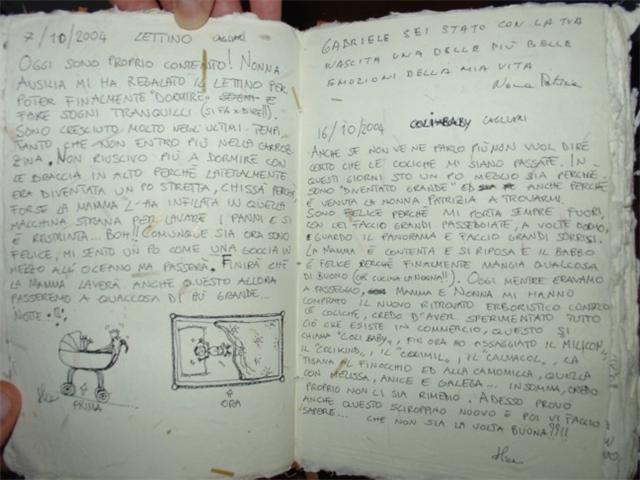 7/10/2004 LETTINO CAGLIARI
OGGI SONO PROPRIO CONTENTO! NONNA
AUSILIA MI HA REGALATO IL LETTINO PER
POTER FINALMENTE "DORMIRE" E
FARE SOGNI TRANQUILLI (SI FA X DIRE!!).
SONO CRESCIUTO MOLTO NEGL'ULTIMI TEMPI,
TANTO CHE NON ENTRO PIÙ NELLA CARROZ-
ZINA. NON RIUSCIVO PIÙ A DORMIRE CON
LE BRACCIA IN ALTO PERCHÈ LATERALMENTE
ERA DIVENTATA UN PO STRETTA, CHISSÀ PERCHÈ
FORSE LA MAMMA L'HA INFILATA IN QUELLA
MACCHINA STRANA PER LAVARE I PANNI E SI
È RISTRINTA... BOH!! COMUNQUE SIA ORA SONO
FELICE, MI SENTO UN PO COME UNA GOCCIA IN
MEZZO ALL'OCEANO MA PASSERÀ. FINIRÀ CHE
LA MAMMA LAVERÀ ANCHE QUESTO ALLORA
PASSEREMO A QUALCOSA DI PIÙ GRANDE...
NOTTE.
PRIMA
ORA
GABRIELE SEI STATO CON LA TUA
NASCITA UNA DELLE PIÙ BELLE
EMOZIONI DELLA MIA VITA
Nonna Patrizia
16/10/2004 COLIBABY CAGLIARI
ANCHE SE NON VE NE PARLO PIÙ NON VUOL DIRE
CERTO CHE LE COLICHE MI SIANO PASSATE. IN
QUESTI GIORNI STO UN PO MEGLIO SIA PERCHÈ
SONO "DIVENTATO GRANDE" ED ANCHE PERCHÈ
È VENUTA LA NONNA PATRIZIA A TROVARMI.
SONO FELICE PERCHÈ MI PORTA SEMPRE FUORI,
CON LEI FACCIO GRANDI PASSEGGIATE, A VOLTE DORMO,
E GUARDO IL PANORAMA E FACCIO GRANDI SORRISI.
LA MAMMA È CONTENTA E SI RIPOSA E IL BABBO
È FELICE PERCHÈ FINALMENTE MANGIA QUALCOSA
DI BUONO (OR CUCINA LA NONNA!!). OGGI MENTRE ERAVAMO
A PASSEGGIO, MAMMA E NONNA MI HANNO
COMPRATO IL NUOVO RITROVATO ERBORISTICO CONTRO
LE COLICHE, CREDO D'AVER SPERIMENTATO TUTTO
CIÒ CHE ESISTE IN COMMERCIO, QUESTO SI
CHIAMA "COLIBABY", FIN ORA HO ASSAGGIATO IL MILICON,
IL "COLIKIND", IL IL "CALMACOL", LA
TISANA AL FINOCCHIO ED ALLA CAMOMILLA, QUELLA
CON MELISSA, ANICE E GALEGA... INSOMMA, CREDO
PROPRIO NON CI SIA RIMEDIO. ADESSO PROVO
ANCHE QUESTO SCIROPPINO NUOVO E POI VI FACCIO
SAPERE... CHE NON SIA LA VOLTA BUONA??!!